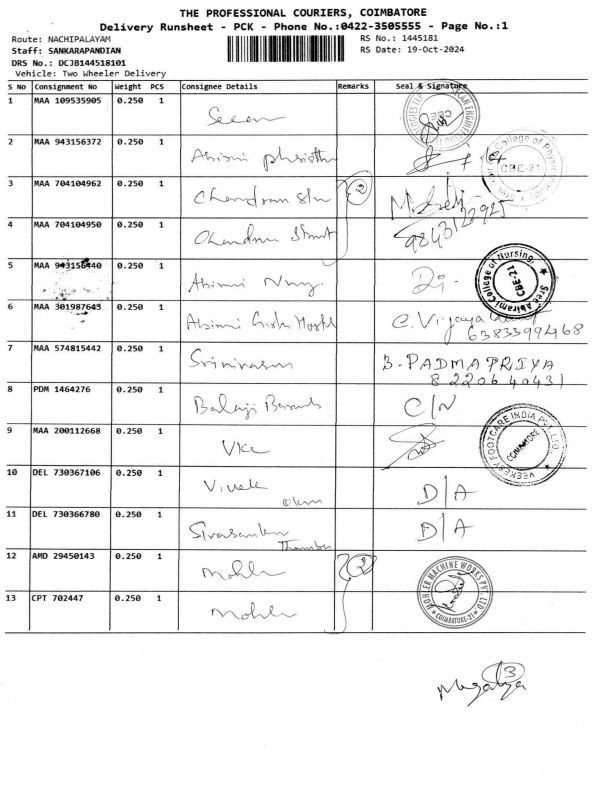 THE PROFESSIONAL COURIERS, COIMBATORE
Delivery Runsheet - PCK - Phone No.:0422-3505555 - Page No.:1
Route: NACHIPALAYAM RS No.: 1445181
Staff: SANKARAPANDIAN RS Date: 19-Oct-2024
DRS No.: DCJB144518101
Vehicle: Two Wheeler Delivery
S No Consignment No Weight PCS Consignee Details Remarks Seal & Signature
1 MAA 109535905 0.250 1
2 MAA 943156372 0.250 1 Abirami
College of Physio
CBE-21
3 MAA 704104962 0.250 1 Chandran 2
4 MAA 704104950 0.250 1 Chandran 9843122925
5 MAA 943156440 0.250 1 Abirami
Sree Abirami College of Nursing,
CBE-21
6 MAA 301987643 0.250 1 Abirami C. Vijaya
6383399468
7 MAA 574815442 0.250 1 Srinivasan B. PADMAPRIYA
8220640431
8 PDM 1464276 0.250 1 Balaji C/N
9 MAA 200112668 0.250 1 VKC
VEEKESY FOOTCARE INDIA PVT. LTD.
COIMBATORE
10 DEL 730367106 0.250 1 Vivek D/A
11 DEL 730366780 0.250 1 D/A
12 AMD 29450143 0.250 1 Mohler 2
MOHLER MACHINE WORKS PVT. LTD
COIMBATORE-21
13 CPT 702447 0.250 1 Mohler
3